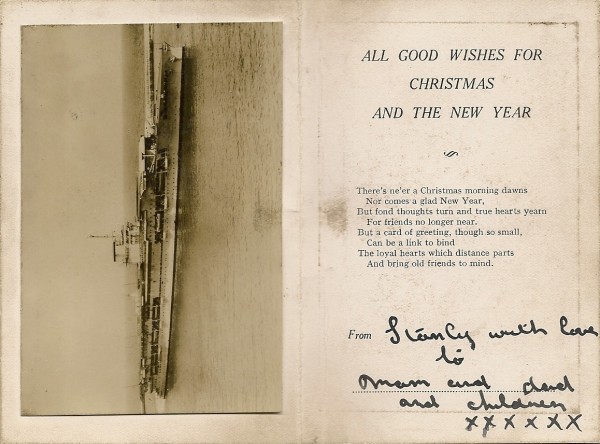 ALL GOOD WISHES FOR
CHRISTMAS
AND THE NEW YEAR
There's ne'er a Christmas morning dawns
Nor comes a glad New Year,
But fond thoughts turn and true hearts yearn
For friends no longer near.
But a card of greeting, though so small,
Can be a link to bind
The loyal hearts which distance parts
And bring old friends to mind.
From Stanly with love
to
Mam and dad
and children
xxxxxx